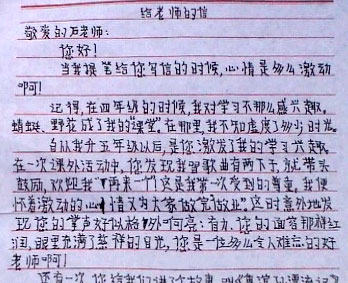 给老师的信
敬爱的石老师:
您好!
当我提笔给您写信的时候,心情是多么激动
啊!
记得,在四年级的时候,我对学习不那么感兴趣。
蜻蜓、野花成了我的“课堂”。在那里,我不知虚度了多少时光。
自从我升五年级以后,是您激发了我的学习兴趣。
在一次课外活动中,您发现我唱歌曲有两下子,就带头
鼓励,欢迎我“再来一个”这是我第一次受到的尊重,我便
怀着激动的心情又为大家做完做业”这时意外地发
现您的掌声好似格外响亮:有力,您的面容那样红
润,眼里充满了慈祥的目光,您是一位多么令人难忘的好
老师啊!
还有一次,您给我们讲了个故事,叫《鲁滨